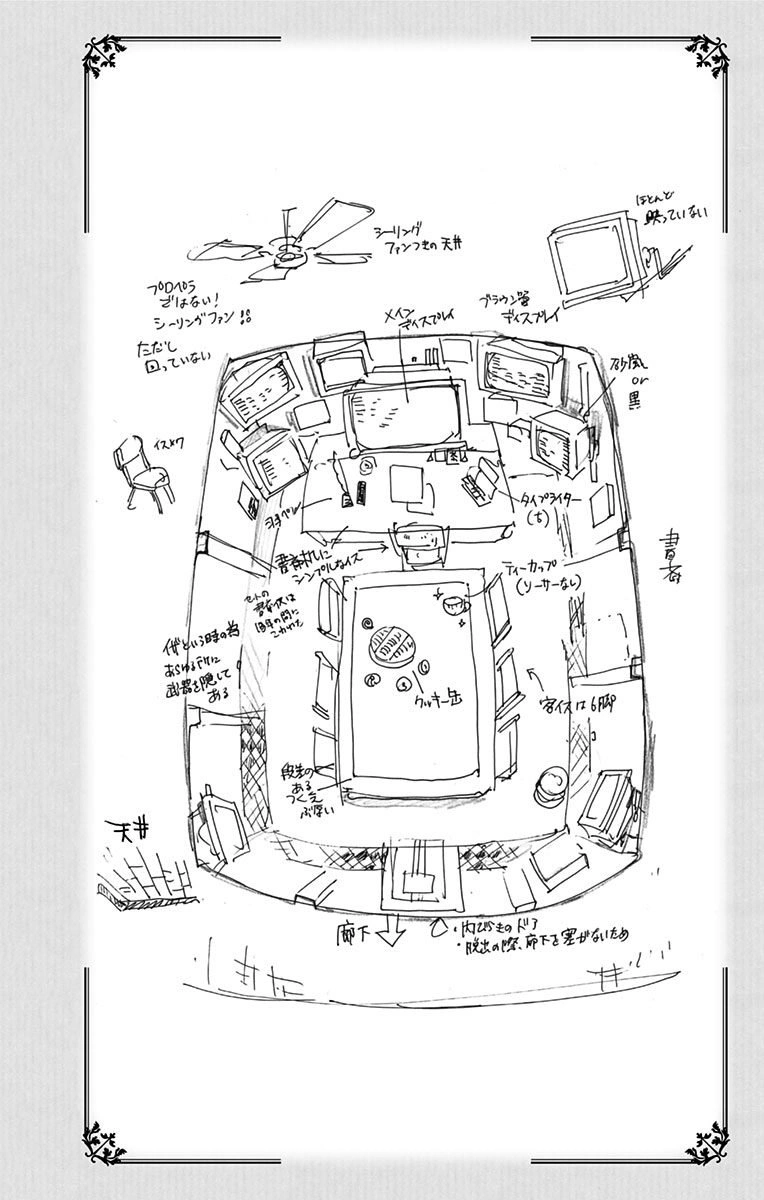 シーリング
ファンつきの天井
ほとんど
映っていない
プロペラ
ではない!
シーリングファン!!
ただし
回っていない
メイン
ディスプレイ
ブラウン管
ディスプレイ
砂嵐
or
黒
イス
タイプライター
(古)
羽ペン
シンプルなイス
ティーカップ
(ソーサーなし)
書斎
イザという時の為
あらゆる所に
武器を隠して
ある
クッキー缶
客イスは6脚
段差の
ある
つくえ
ぶ厚い
天井
廊下
・内びらきのドア
・脱出の際、廊下を塞がないため